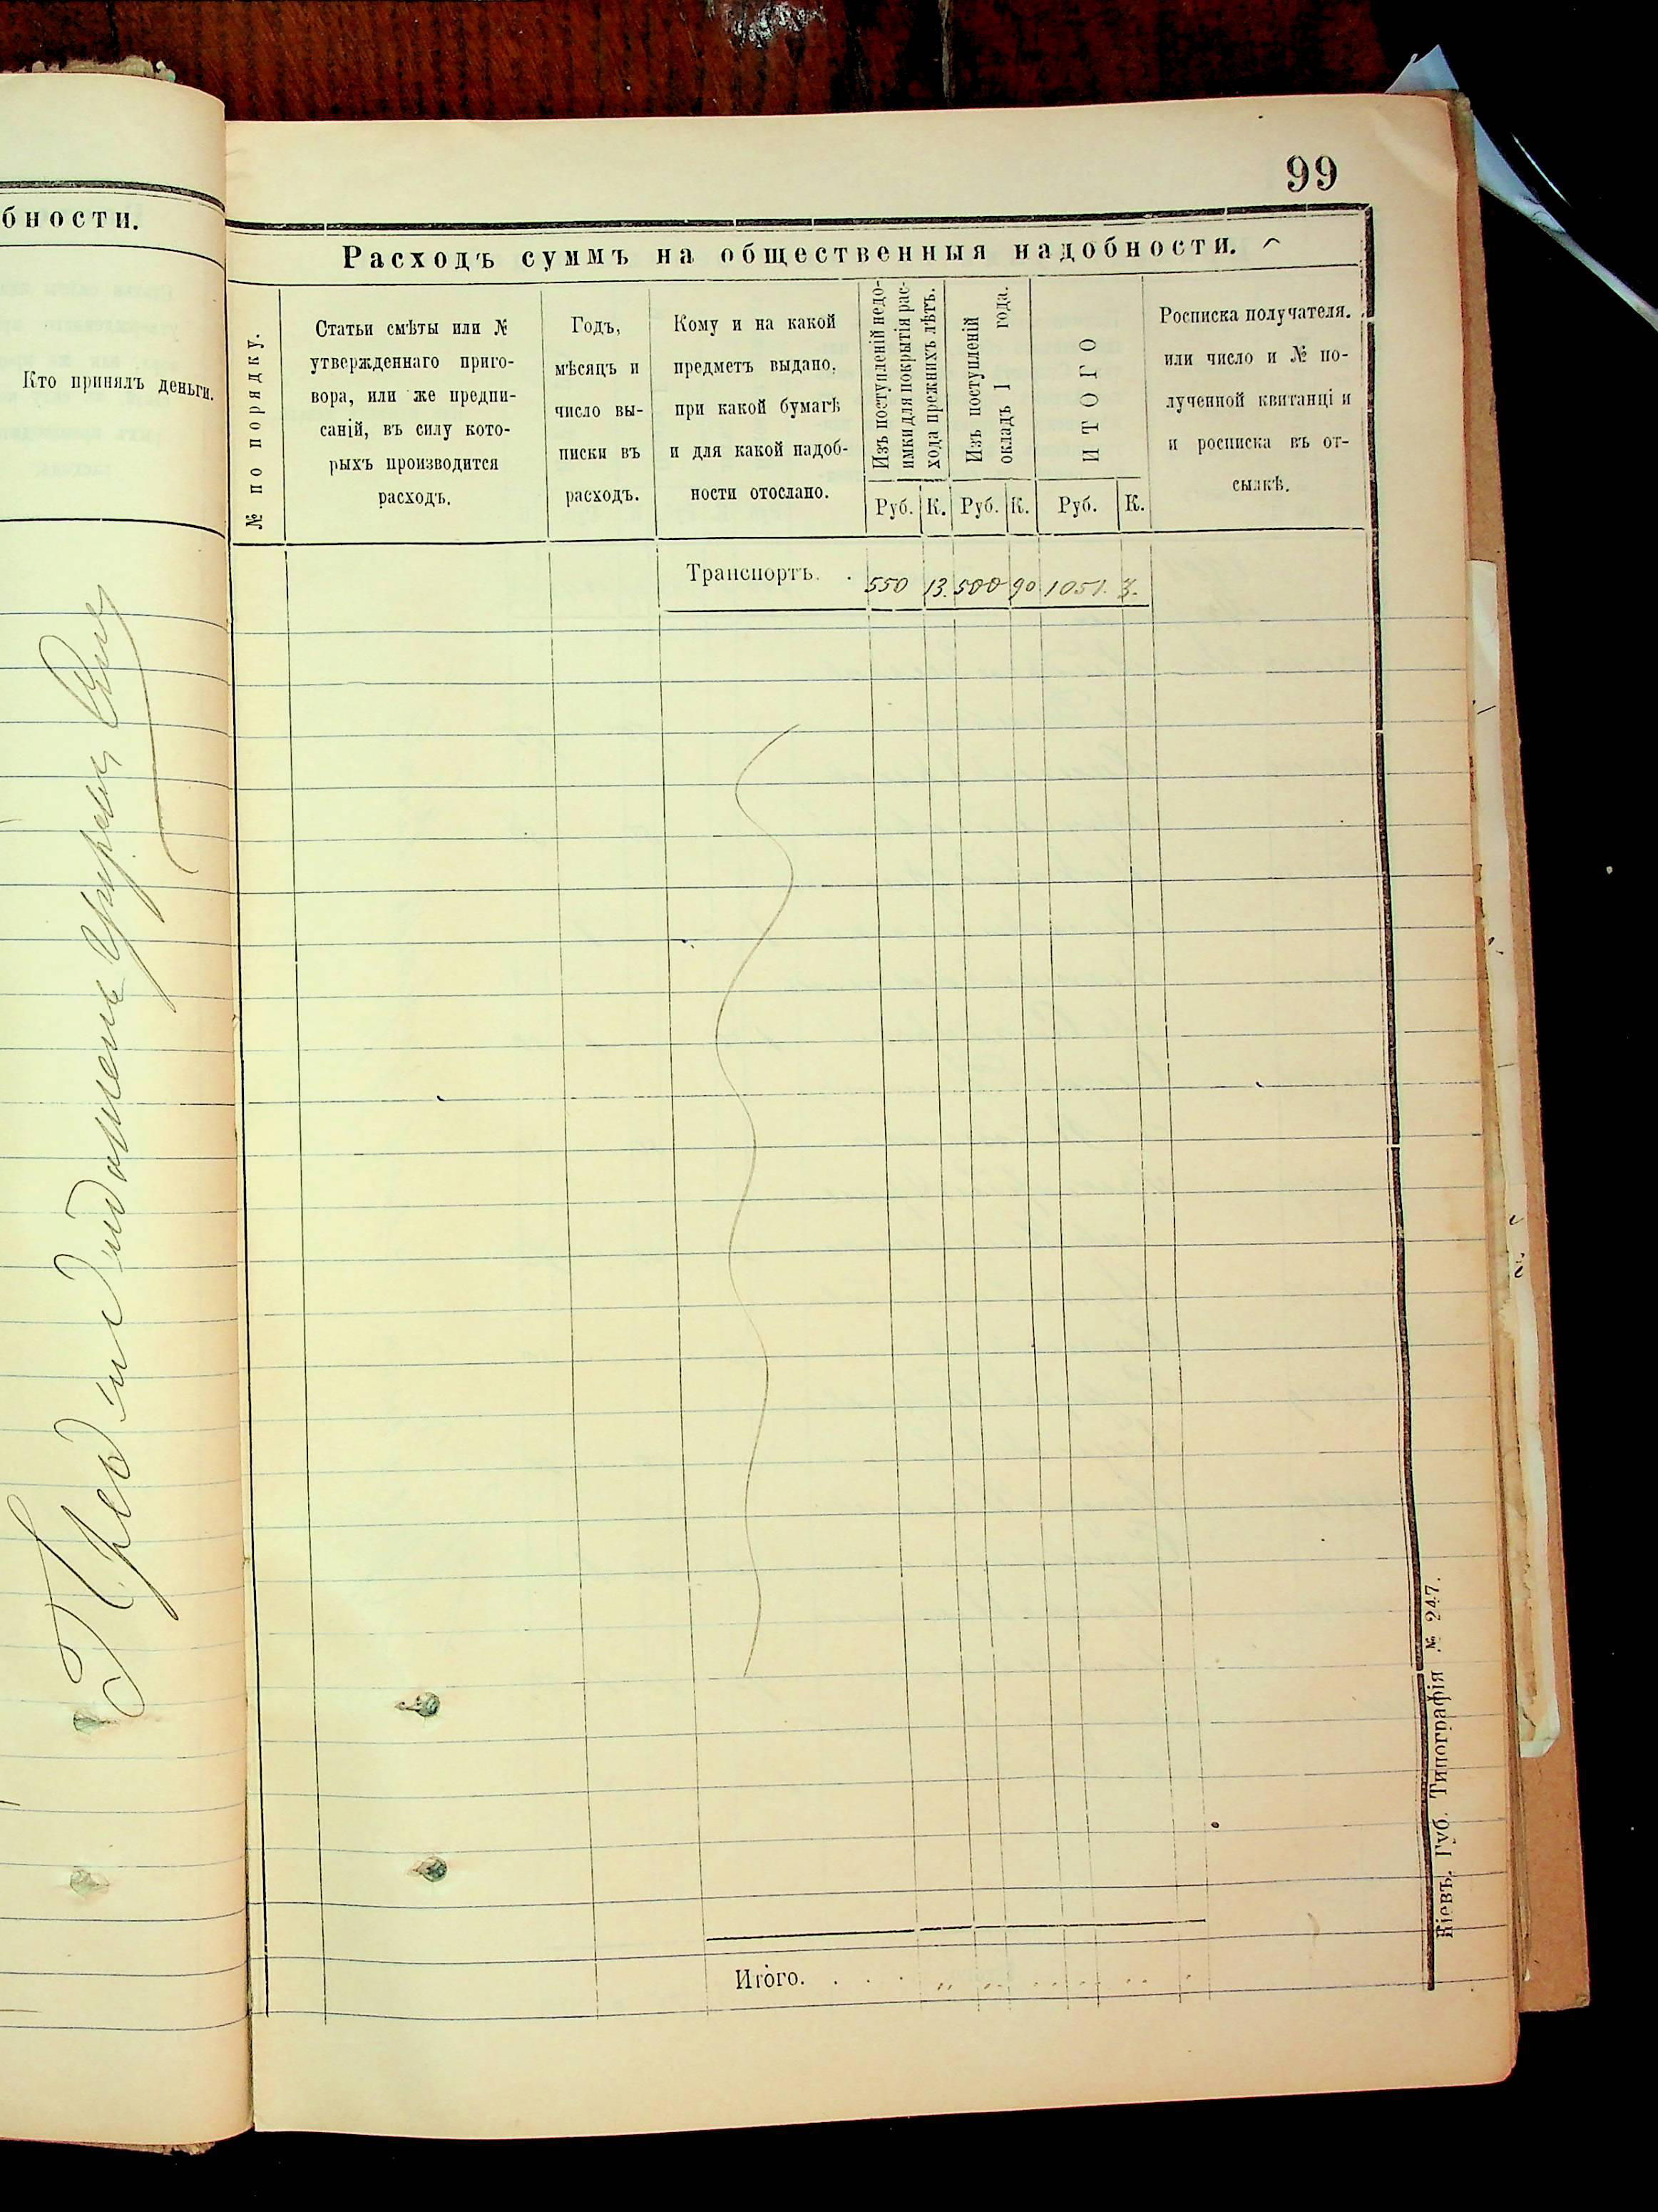 99
бности.
Кто принялъ деньги.
Расходъ суммъ на общественныя надобности.
№ по порядку.
Статьи смѣты или №
утвержденнаго приго-
вора, или же предпи-
саній, въ силу кото-
рыхъ производится
расходъ.
Годъ,
мѣсяцъ и
число вы-
писки въ
расходъ.
Кому и на какой
предметъ выдано,
при какой бумагѣ
и для какой надоб-
ности отослано.
Изъ поступленій недо-
имки для покрытія рас-
хода прежнихъ лѣтъ.
Изъ поступленій
окладъ 1 года.
ИТОГО
Руб. К. Руб. К. Руб. К.
Росписка получателя.
или число и № по-
лученной квитанціи
и росписка въ от-
сылкѣ.
Транспортъ. . 550 13. 500 90 1051. 3.
Итого. . . .
Кіевъ. Губ. Типографія № 247.